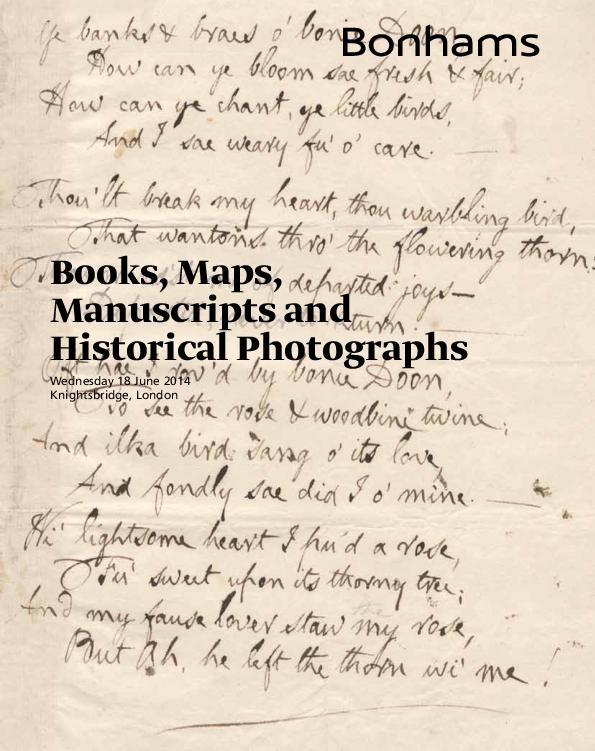 Ye banks & braes o' bonie Doon,
Bonhams
How can ye bloom sae fresh & fair;
How can ye chant, ye little birds,
And I sae weary fu' o' care.
Thou'lt break my heart, thou warbling bird,
That wantons thro' the flowering thorn:
departed joys—
Books, Maps,
Manuscripts and
Historical Photographs
Wednesday 18 June 2014
Knightsbridge, London
hae I rov'd by bonie Doon,
To see the rose & woodbine twine;
And ilka bird sang o' its love,
And fondly sae did I o' mine.
Wi' lightsome heart I pu'd a rose,
Fu' sweet upon its thorny tree;
And my fause lover staw my rose,
But Ah, he left the thorn wi' me!